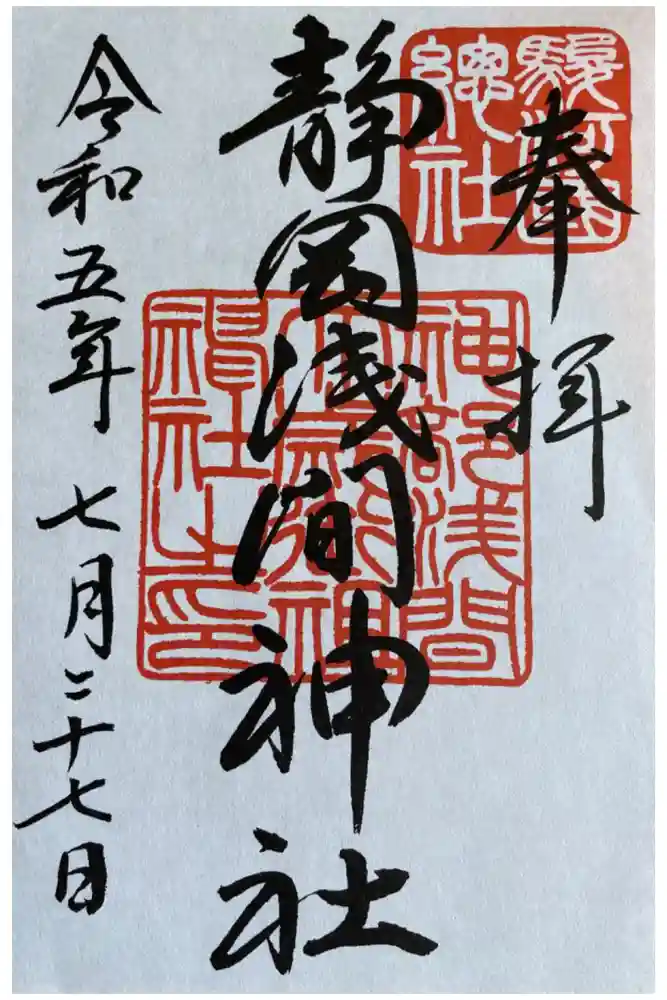 奉拝
駿河國
總社
静岡浅間神社
神部浅間
大歳御祖
神社之印
令和五年 七月二十七日